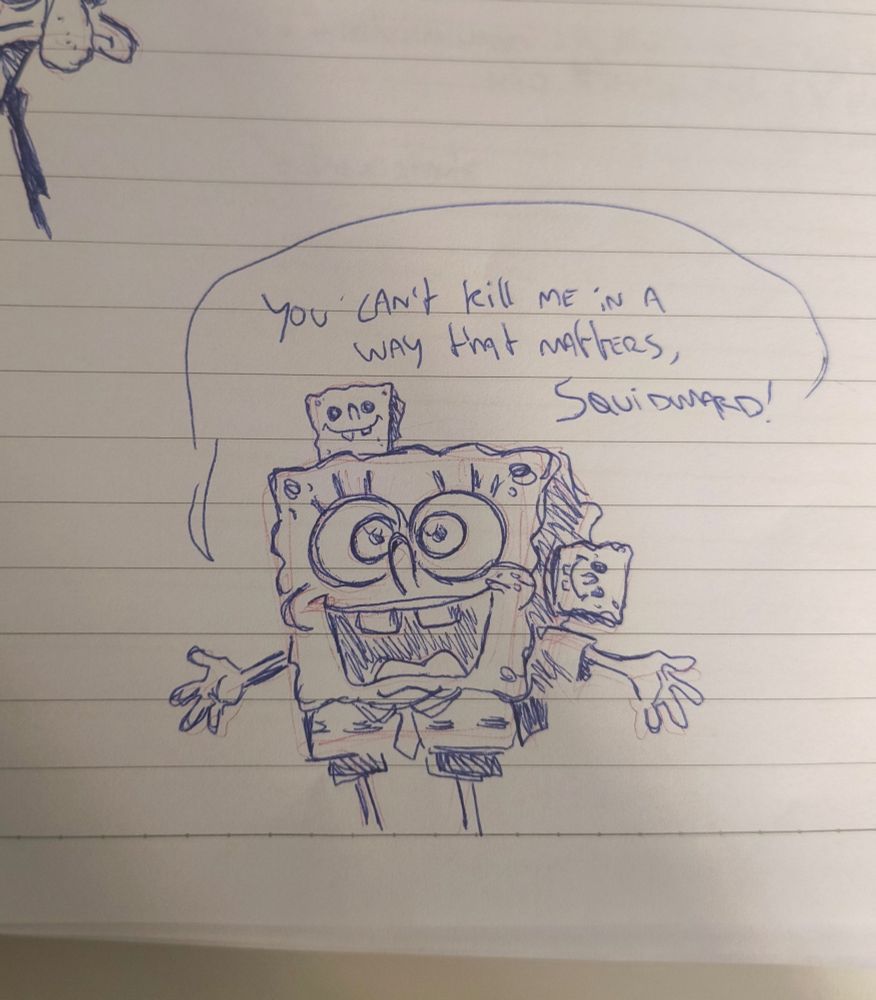 You CAN't kill ME iN A
WAY that MATTERS,
SQUiDWARD!